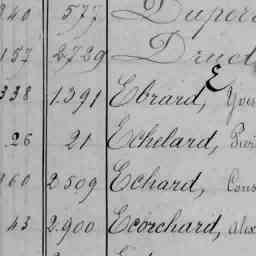 340 577 Dupor
157 2729 Druet
E
338 1.391 Ebrard, Yves
26 21 Echelard, Pier
360 2509 Echard, Cons
43 2.900 Ecorchard, Alex